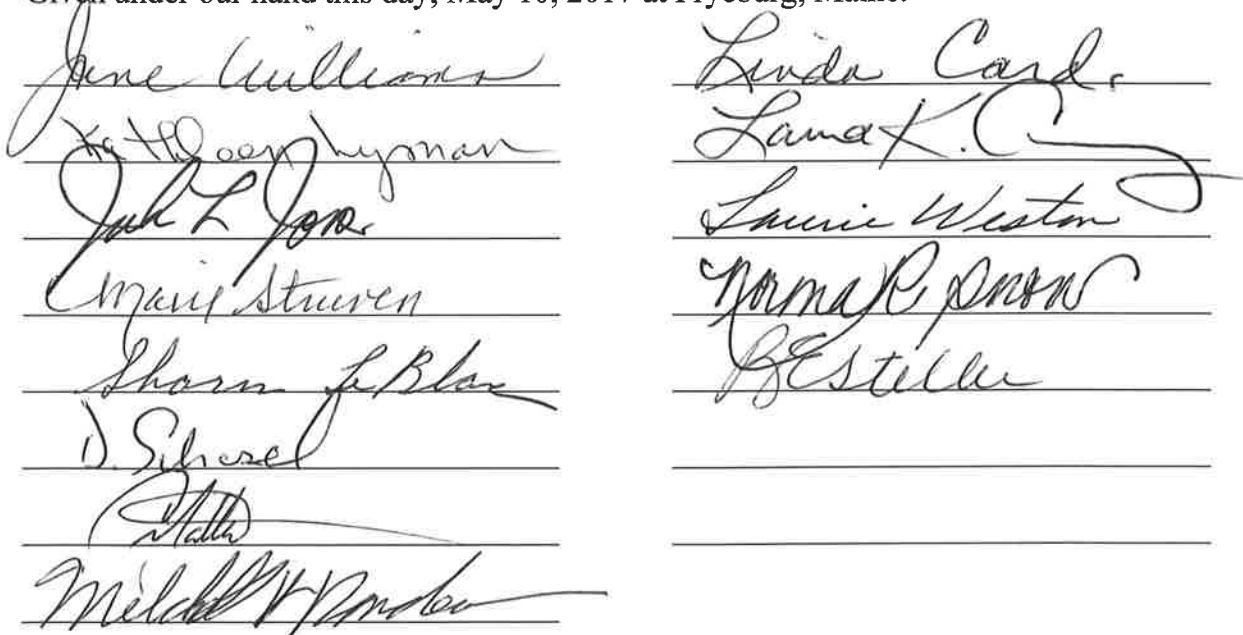 Given under our hand this day, May 10, 2017 at Fryeburg, Maine.
Jane Williams
Kathleen Lyman
Jack L Jones
Marie Struven
Sharon LeBlanc
D. Schozel
Linda Card
Laura K. C
Laurie Weston
Norma R Snow
B E Steller